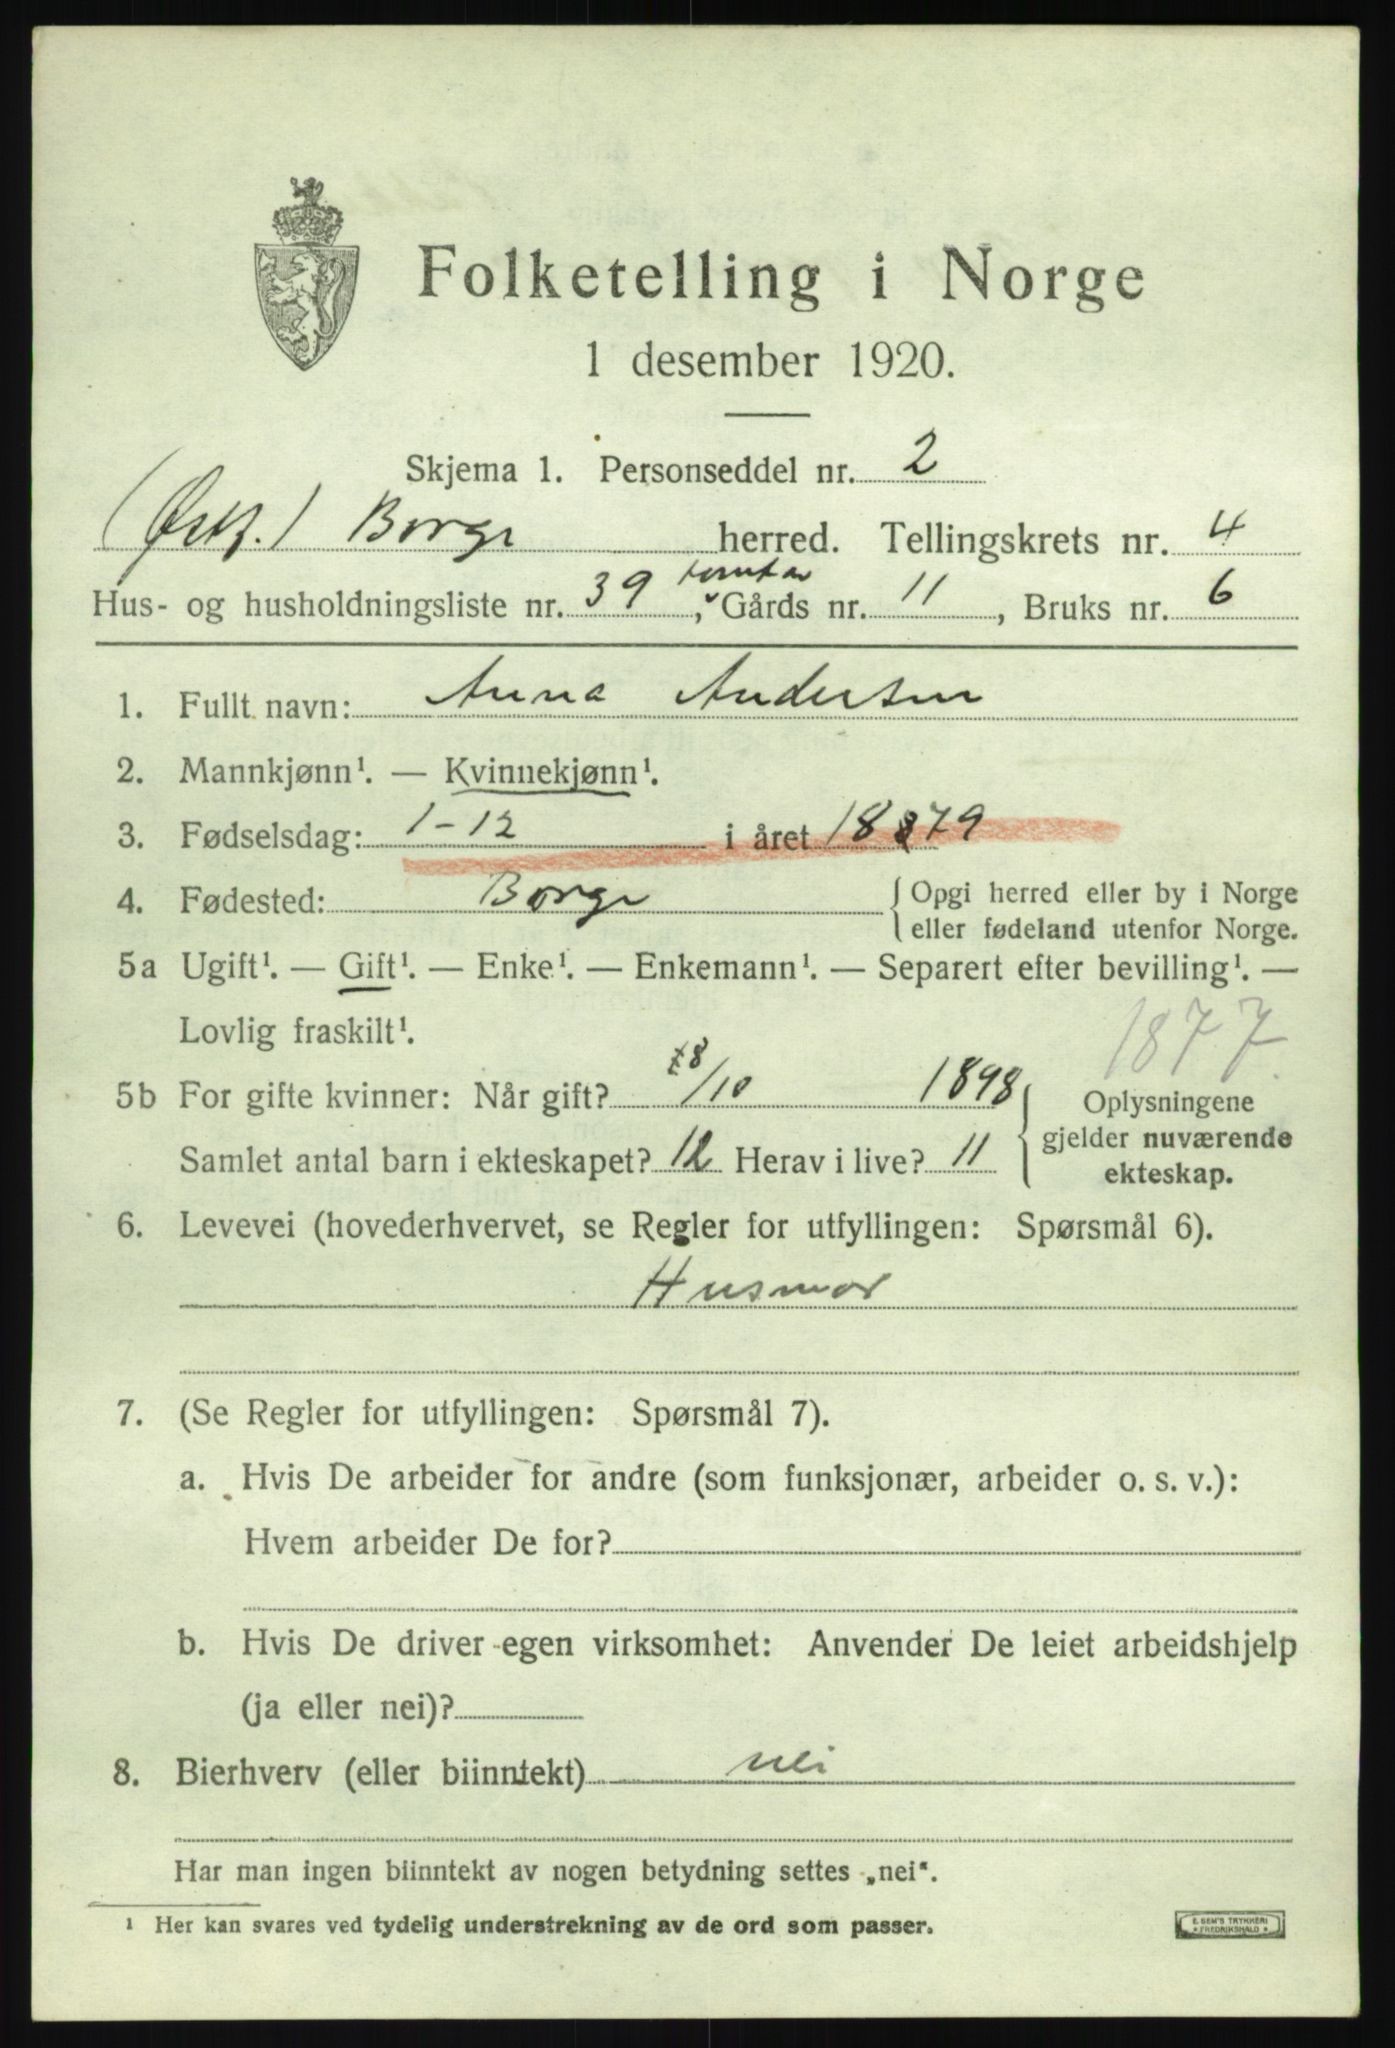 Folketelling i Norge
1 desember 1920.
Skjema 1. Personseddel nr. 2
(Østf.) Borge herred. Tellingskrets nr. 4
Hus- og husholdningsliste nr. 39, tomt av Gårds nr. 11, Bruks nr. 6
1. Fullt navn: Anna Andersen
2. Mannkjønn¹. — Kvinnekjønn¹.
3. Fødselsdag: 1-12 i året 1879
4. Fødested: Borge { Opgi herred eller by i Norge
eller fødeland utenfor Norge.
5a Ugift¹. — Gift¹. — Enke¹. — Enkemann¹. — Separert efter bevilling¹. —
Lovlig fraskilt¹.
1877
5b For gifte kvinner: Når gift? 8/10 1898
Samlet antal barn i ekteskapet? 12 Herav i live? 11
{ Oplysningene
gjelder nuværende
ekteskap.
6. Levevei (hovederhvervet, se Regler for utfyllingen: Spørsmål 6).
Husmor
7. (Se Regler for utfyllingen: Spørsmål 7).
a. Hvis De arbeider for andre (som funksjonær, arbeider o. s. v.):
Hvem arbeider De for?
b. Hvis De driver egen virksomhet: Anvender De leiet arbeidshjelp
(ja eller nei)?
8. Bierhverv (eller biinntekt) nei
Har man ingen biinntekt av nogen betydning settes „nei“.
¹ Her kan svares ved tydelig understrekning av de ord som passer.
E. SEM'S TRYKKERI
* FREDRIKSHALD *